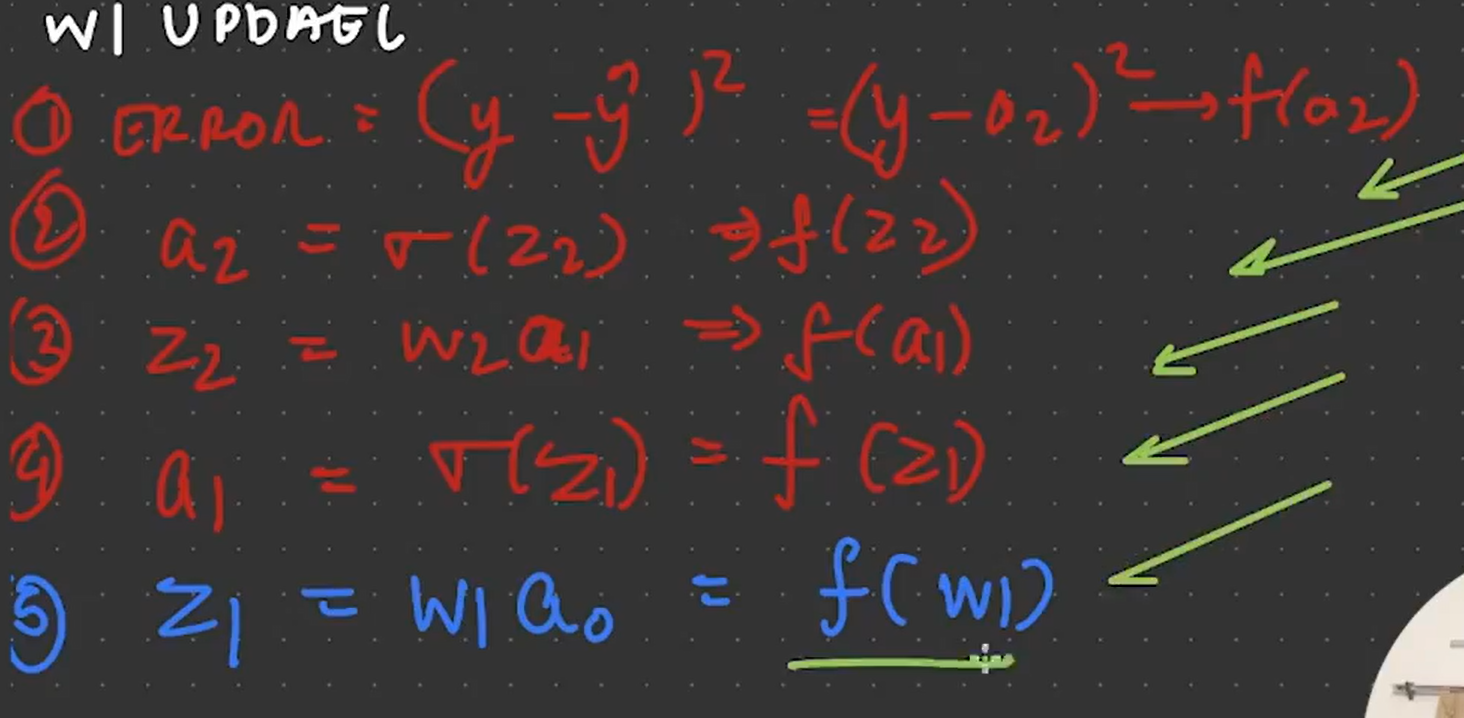 W1 UPDATE
① ERROR = (y - ŷ)² = (y - a₂)² → f(a₂)
② a₂ = σ(z₂) ⇒ f(z₂)
③ z₂ = w₂a₁ ⇒ f(a₁)
④ a₁ = σ(z₁) = f(z₁)
⑤ z₁ = W₁a₀ = f(w₁)